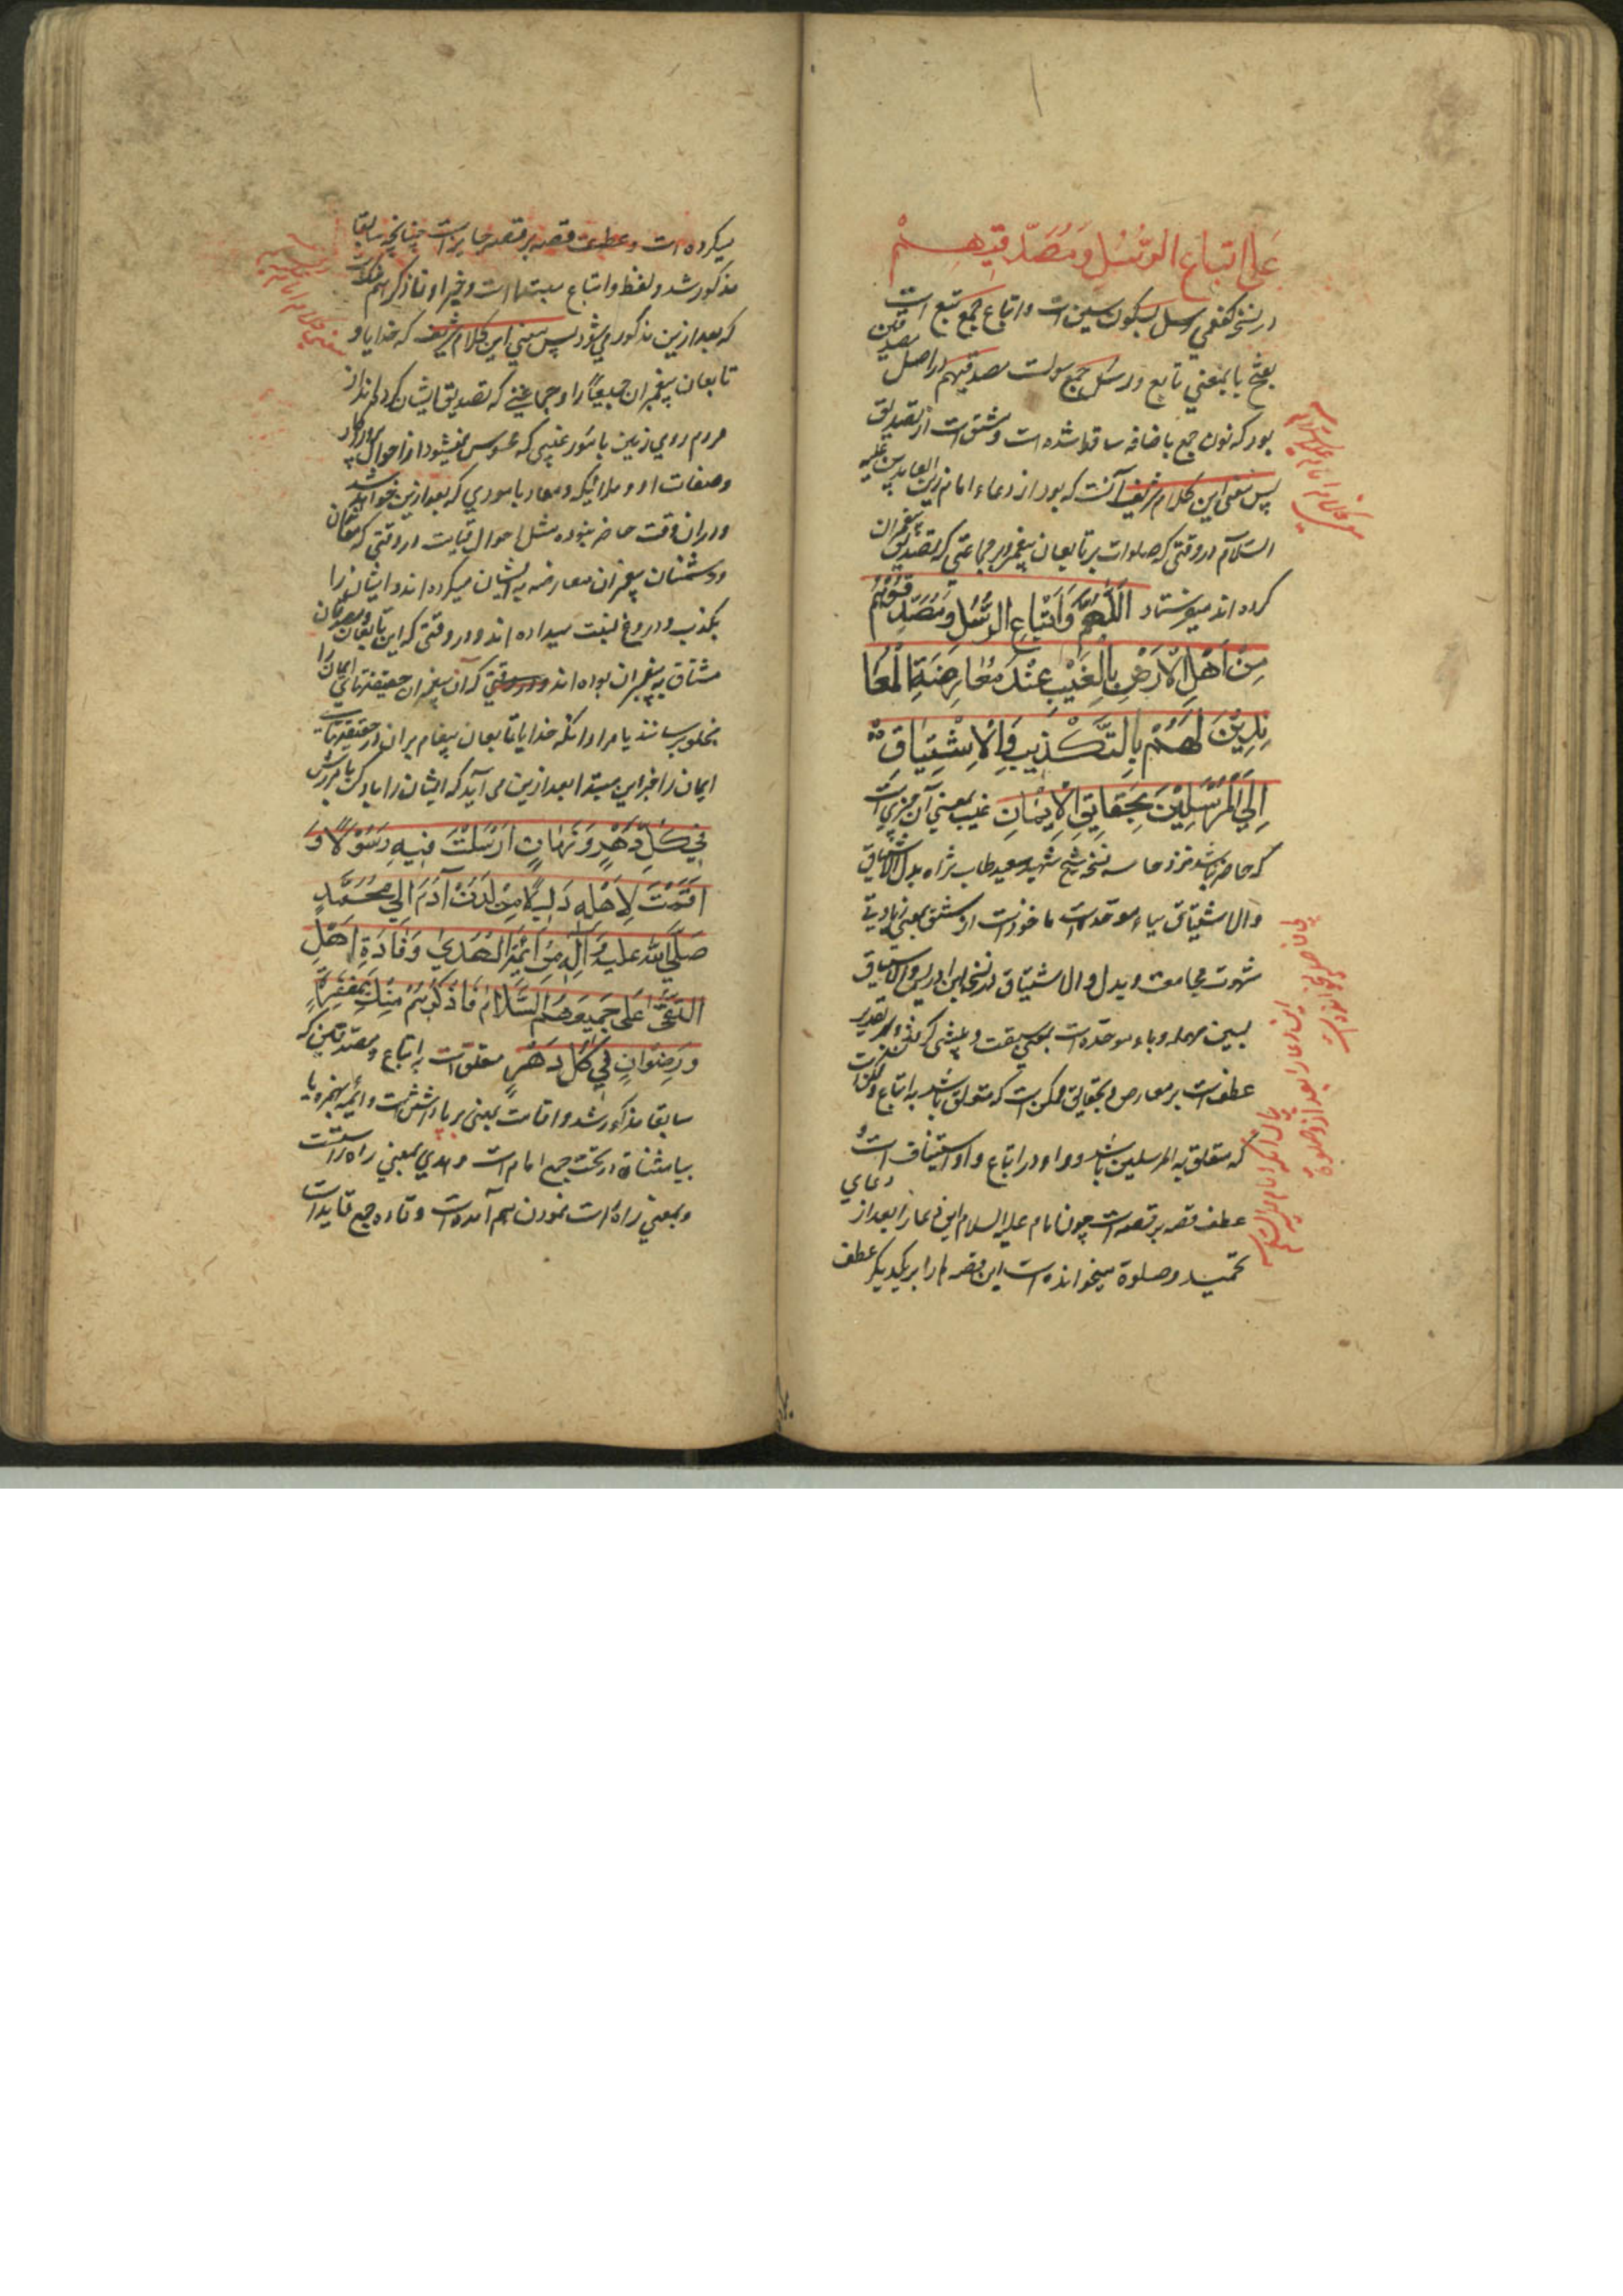 عَلَی اَتباعِ الرُّسُلِ وَمُصَدِّقیهِمْ
در نسخه کفعمی رسل بسکون سین است و اتباع جمع تبع است
بفتح با بمعنی تابع و رسل جمع رسولست مصدقیهم در اصل مصدقین
بود که نون جمع باضافه ساقط شده است و مشتق است از تصدیق
پس معنی این کلام شریف آنست که بود از دعاء امام زین العابدین علیه
السلام در وقتی که صلوات بر تابعان پیغمبر و بر جماعتی که تصدیق پیغمبران
کرده اند میفرستاد اَللّهُمَّ وَاَتْباعِ الرُّسُلِ وَمُصَدِّقُوهُمْ
مِنْ اَهْلِ الْاَرْضِ بِالْغَیْبِ عِنْدَ مُعارَضَةِ الْمُعا
نِدِیْنَ لَهُمْ بِالتَّکْذِیبِ وَالْاِشْتِیاقِ
اِلَی الْمُرْسَلِیْنَ بِحَقایِقِ الْاِیْمانِ غیب بمعنی آن چیزیست
که حاضر نباشد نزد حاسه نسخه شیخ شهید سعید طاب ثراه بدل الاشتیاق
والاشتیاق بباء موحده است ماخوذست از شبق بمعنی زیادتی
شهوت مجامعت و بدل والاشتیاق در نسخه ابن ادریس والاستباق
بسین مهمله و باء موحده است بمعنی سبقت و پیشی
عطف است بر معارضه و بحقایق ممکن است که متعلق باشد به اتباع و ممکن است
که متعلق به المرسلین باشد و واو در اتباع واو استیناف است و
عطف قصه بر قصه است چون امام علیه السلام این دعا را بعد از دعای
تحمید و صلوة میخوانده است این قصه ها را بر یکدیگر عطف
میکرده است و عطف قصه بر قصه جایز است چنانچه سابقا
مذکور شد و لفظ و اتباع مبتدا است و خبر او فاذکرهم منک است
که بعد ازین مذکور می شود پس معنی این کلام شریف که خدایا و
تابعان پیغمبران جمیعا را و جماعتی که تصدیق ایشان کرده اند از
مردم روی زمین بامور غیبی که محسوس نمیشود از احوال پروردگار
و صفات او و ملائکه و معاد بآموری که بعد ازین خواهد شد
و دران وقت حاضر نبوده مثل احوال قیامت در وقتی که معاندان
و دشمنان پیغمبران معارضه به ایشان میکرده اند و ایشان را
بکذب و دروغ نسبت میداده اند و در وقتی که این تابعان و مصدقان
مشتاق به پیغمبران بوده اند که آن پیغمبران حقیقتهای ایمان را
بخلق برسانند یا مراد آنکه خدایا تابعان پیغامبران از حقیقتهای
ایمان را خبر این مبتدا بعد ازین می آید که ایشان را یاد کن بآمرزش
فِی کُلِّ دَهْرٍ وَزَمانٍ اَرْسَلْتَ فِیهِ رَسُوْلًا وَ
اَقَمْتَ لِاَهْلِهِ دَلِیْلًا مِنْ لَدُنْ آدَمَ اِلی مُحَمَّدٍ
صَلَّی اللّهُ عَلَیْهِ وَآلِهِ مِنْ اَئِمَّةِ الْهُدَی وَقَادَةِ اَهْلِ
التُّقَی عَلَی جَمِیعِهِمُ السَّلَامُ فَاذْکُرْهُمْ مِنْکَ بِمَغْفِرَةٍ
وَرِضْوانٍ فِی کُلِّ دَهْرٍ متعلق است به اتباع و مصدقین که
سابقا مذکور شد و اقامت بمعنی برپا داشتن است و ائمه بهمزه و یا
بیا مثناة در تحت جمع امام است و هدی بمعنی راه راست است
و بمعنی راه راست نمودن هم آمده است و قاده جمع قاید است